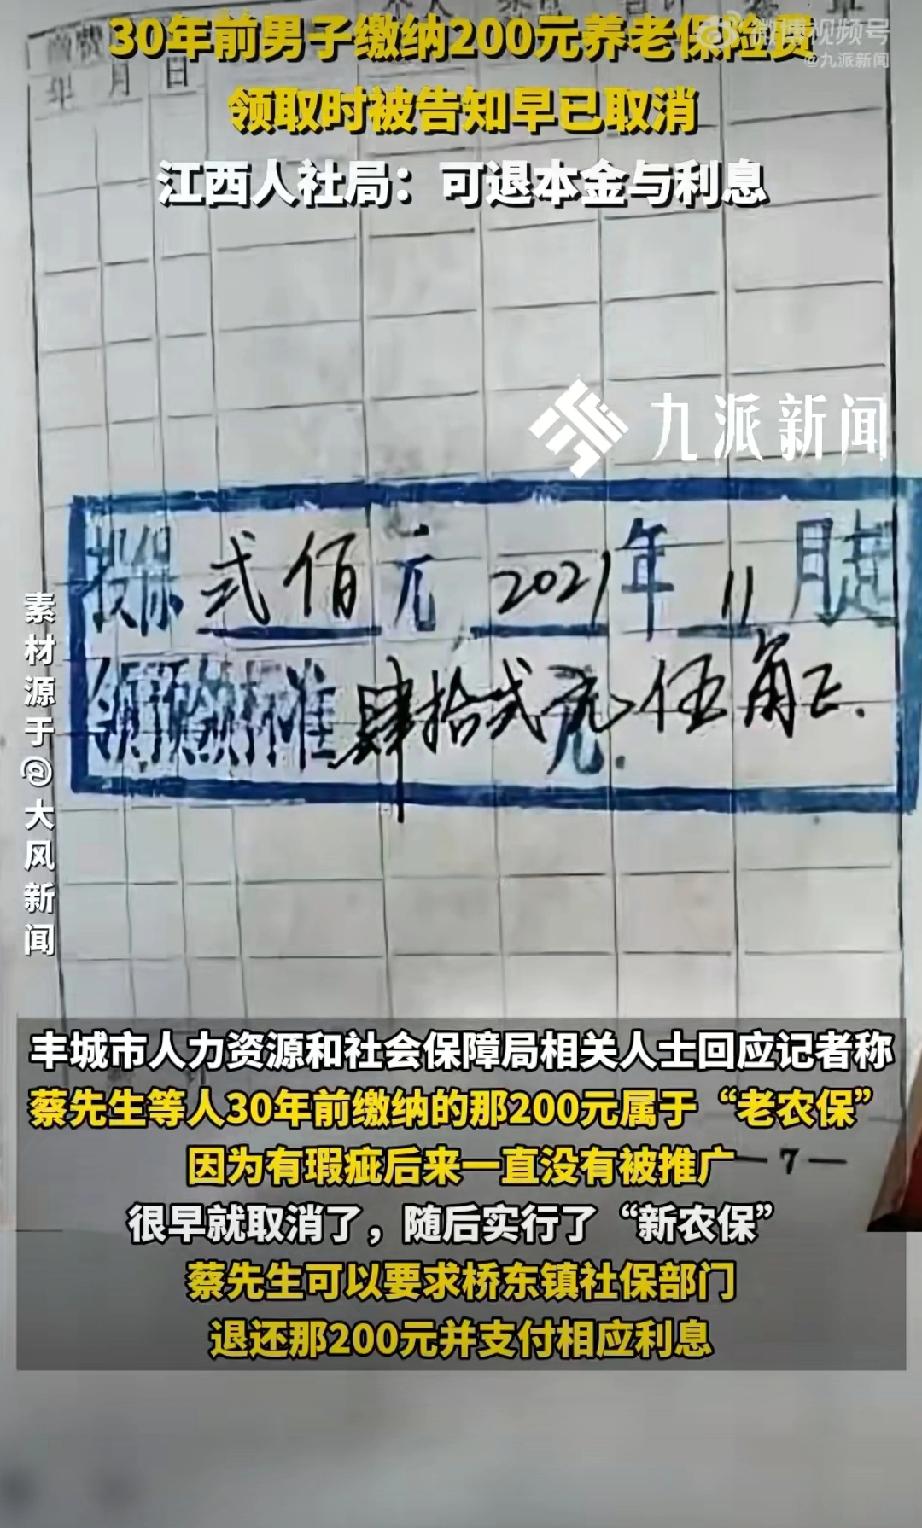 个人
微博视频号
@九派新闻
30年前男子缴纳200元养老保险费
年 月 日
领取时被告知早已取消
江西人社局：可退本金与利息
九派新闻
投保弍佰元，2021年11月起
领预领标准肆拾弍元伍角正.
素材源于@大风新闻
丰城市人力资源和社会保障局相关人士回应记者称
蔡先生等人30年前缴纳的那200元属于“老农保”
因为有瑕疵后来一直没有被推广
—7—
很早就取消了，随后实行了“新农保”
蔡先生可以要求桥东镇社保部门
退还那200元并支付相应利息